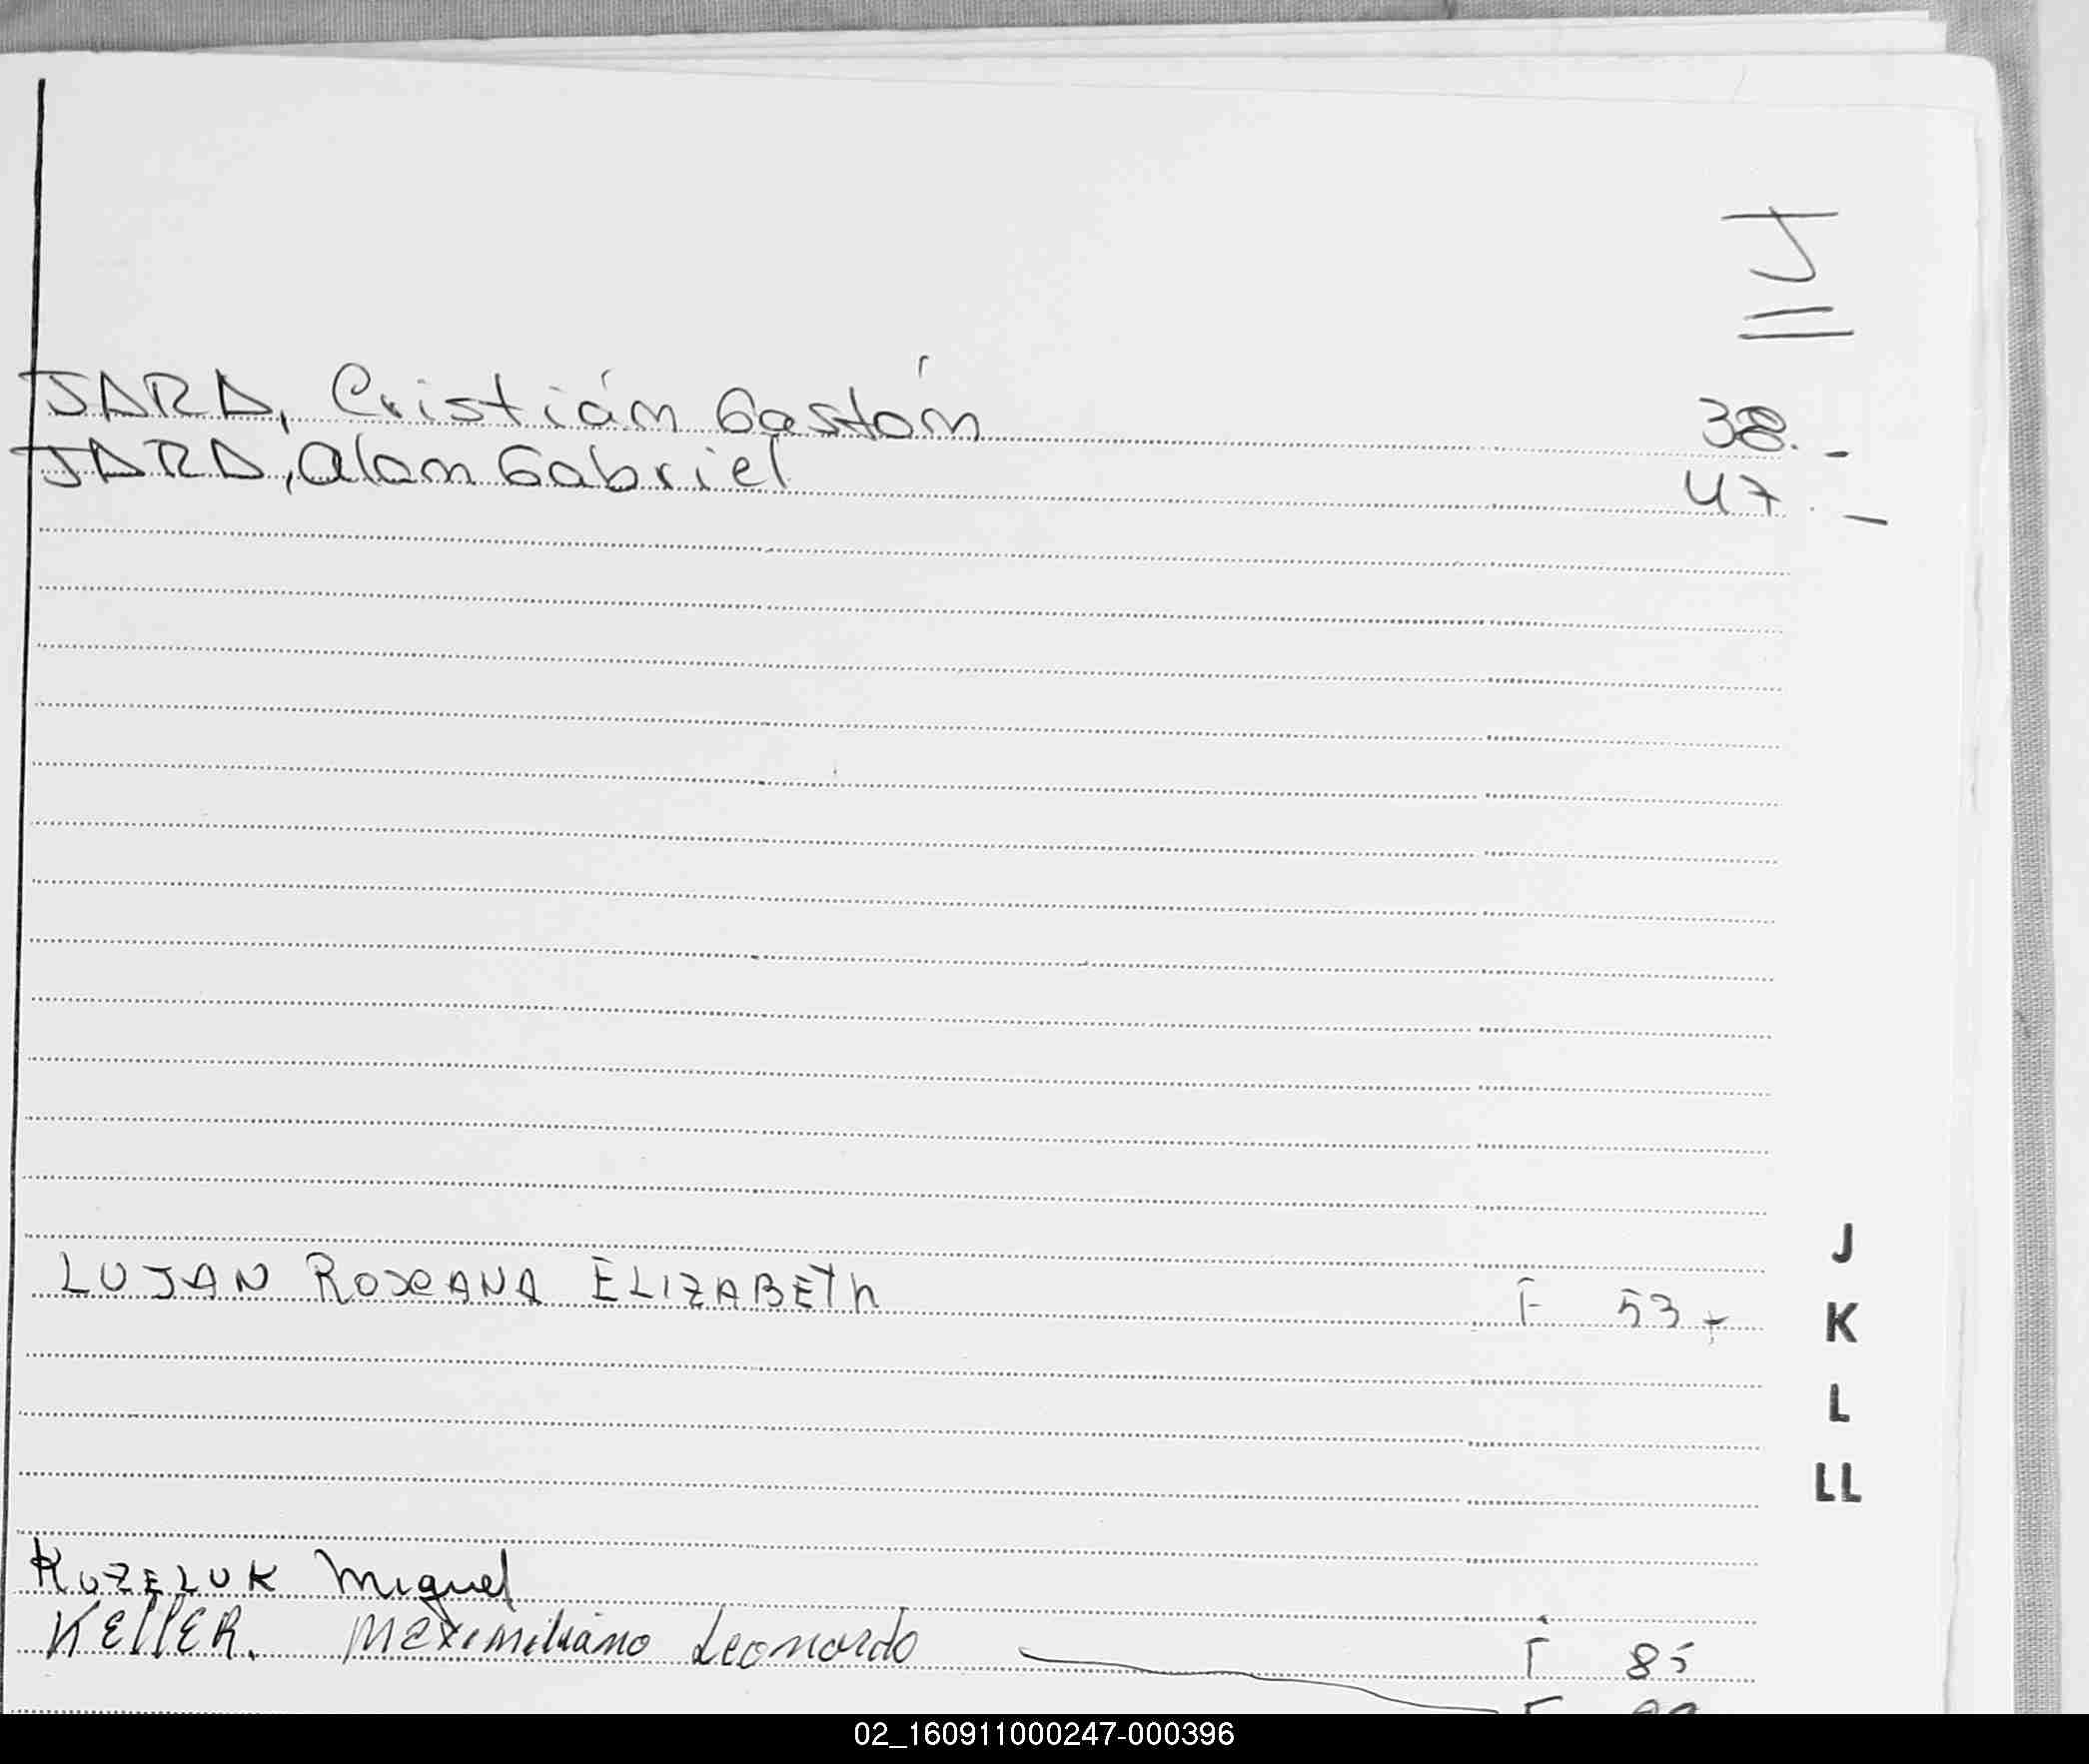 J
JARA, Cristián Gastón 38.-
JARA, Alan Gabriel 47.-
J
LUJAN ROXANA ELIZABETh F 53
K
L
LL
KOZELUK Miguel F 85
KELLER. Maximiliano Leonardo F
02_160911000247-000396